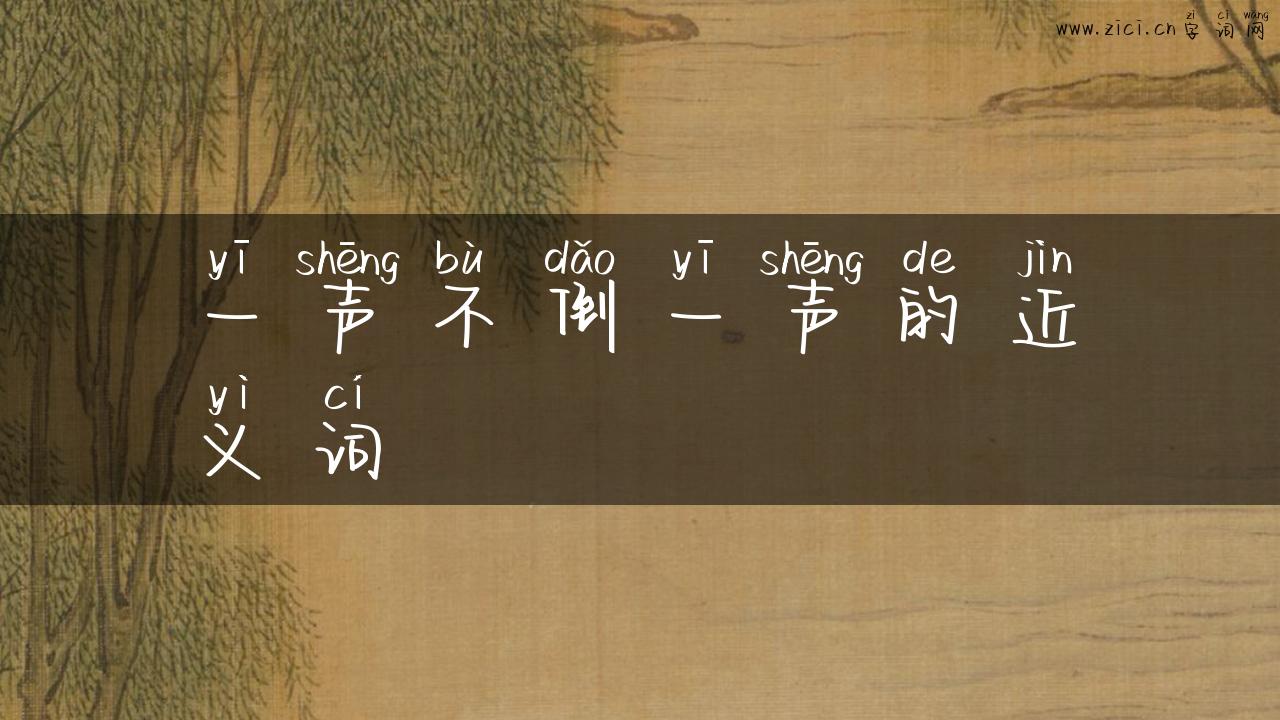 zì cí wǎng
www.zici.cn 字词网
yī shēng bù dǎo yī shēng de jìn
一声不倒一声的近
yì cí
义词